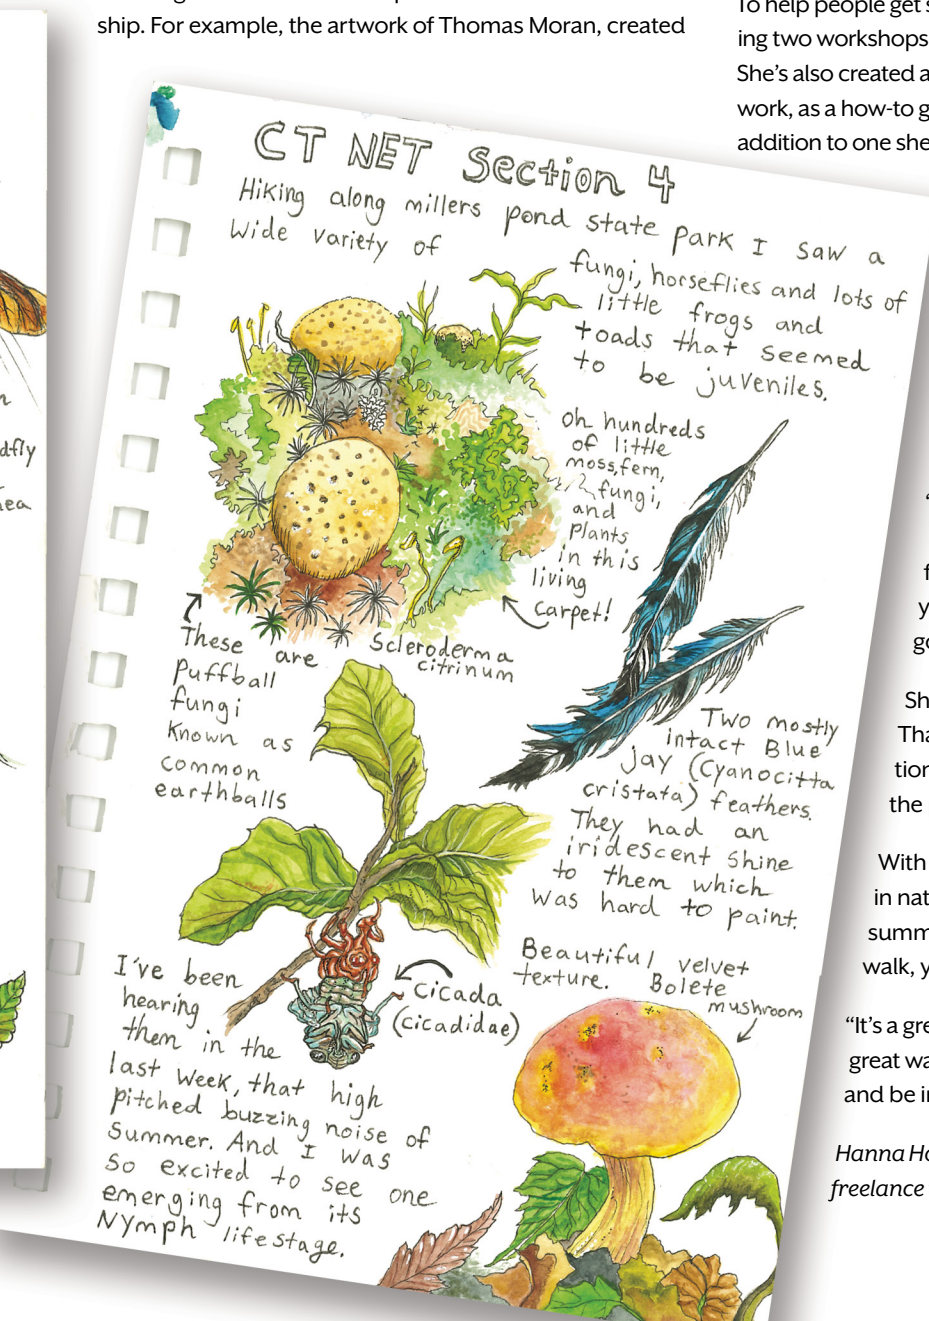 ship. For example, the artwork of Thomas Moran, created
To help people get
ing two workshops
She's also created a
work, as a how-to
addition to one she
CT NET Section 4
Hiking along millers pond state park I saw a
wide variety of
fungi, horseflies and lots of
little frogs and
toads that seemed
to be juveniles.
oh hundreds
of little
moss, fern,
fungi,
and
plants
in this
living
carpet!
These are
Puffball
fungi
Known as
common
earthballs
Scleroderma
citrinum
Two mostly
intact Blue
jay (Cyanocitta
cristata) feathers.
They had an
iridescent shine
to them which
was hard to paint.
I've been
hearing
them in the
last week, that high
pitched buzzing noise of
Summer. And I was
so excited to see one
emerging from its
Nymph lifestage.
Cicada
(cicadidae)
Beautiful velvet
texture. Bolete
mushroom
the
With
in nat
summ
walk, y
"It's a gre
great wa
and be in
Hanna Ho
freelance